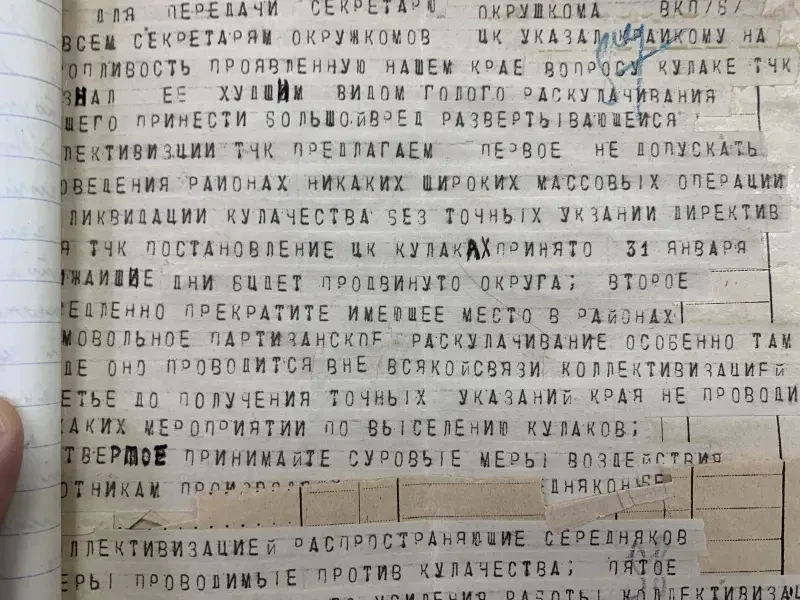 ДЛЯ ПЕРЕДАЧИ СЕКРЕТАРЮ ОКРУШКОМА ВКП/б/
ВСЕМ СЕКРЕТАРЯМ ОКРУЖКОМОВ ЦК УКАЗАЛ НА
ОПЛИВОСТЬ ПРОЯВЛЕННУЮ НАШЕМ КРАЕ ВОПРОСУ КУЛАКЕ ТЧК
ЗНАЛ ЕЕ ХУДШИМ ВИДОМ ГОЛОГО РАСКУЛАЧИВАНИЯ
ШЕГО ПРИНЕСТИ БОЛЬШОЙВРЕД РАЗВЕРТЫВАЮЩЕЙСЯ
ЛЕКТИВИЗЦИИ ТЧК ПРЕДЛАГАЕМ ПЕРВОЕ НЕ ДОПУСКАТЬ
ОВЕДЕНИЯ РАЙОНАХ НИКАКИХ ШИРОКИХ МАССОВЫХ ОПЕРАЦИИ
ЛИКВИДАЦИИ КУЛАЧЕСТВА БЕЗ ТОЧНЫХ УКЗАНИИ ДИРЕКТИВ
Я ТЧК ПОСТАНОВЛЕНИЕ ЦК КУЛАКАХПРИНЯТО 31 ЯНВАРЯ
ИЖАИШИЕ ДНИ БУДЕТ ПРОДВИНУТО ОКРУГА; ВТОРОЕ
ЕДЛЕННО ПРЕКРАТИТЕ ИМЕЮЩЕЕ МЕСТО В РАЙОНАХ
МОВОЛЬНОЕ ПАРТИЗАНСКОЕ РАСКУЛАЧИВАНИЕ ОСОБЕННО ТАМ
ДЕ ОНО ПРОВОДИТСЯ ВНЕ ВСЯКОЙСВЯЗИ КОЛЛЕКТИВИЗАЦИЕЙ
ЕТЬЕ ДО ПОЛУЧЕНИЯ ТОЧНЫХ УКАЗАНИЙ КРАЯ НЕ ПРОВОДИ
КАКИХ МЕРОПРИЯТИИ ПО ВЫСЕЛЕНИЮ КУЛАКОВ;
ТВЕРТОЕ ПРИНИМАЙТЕ СУРОВЫЕ МЕРЫ ВОЗДЕЙСТВИЯ
ОТНИКАМ
ЛЛЕКТИВИЗАЦИЕЙ РАСПРОСТРАНЯЮЩИЕ СЕРЕДНЯКОВ
ЕРЫ ПРОВОДИМЫЕ ПРОТИВ КУЛАЧЕСТВА; ПЯТОЕ
УСИЛЕНИЯ РАБОТЫ КОЛЛЕКТИВИЗАЦ